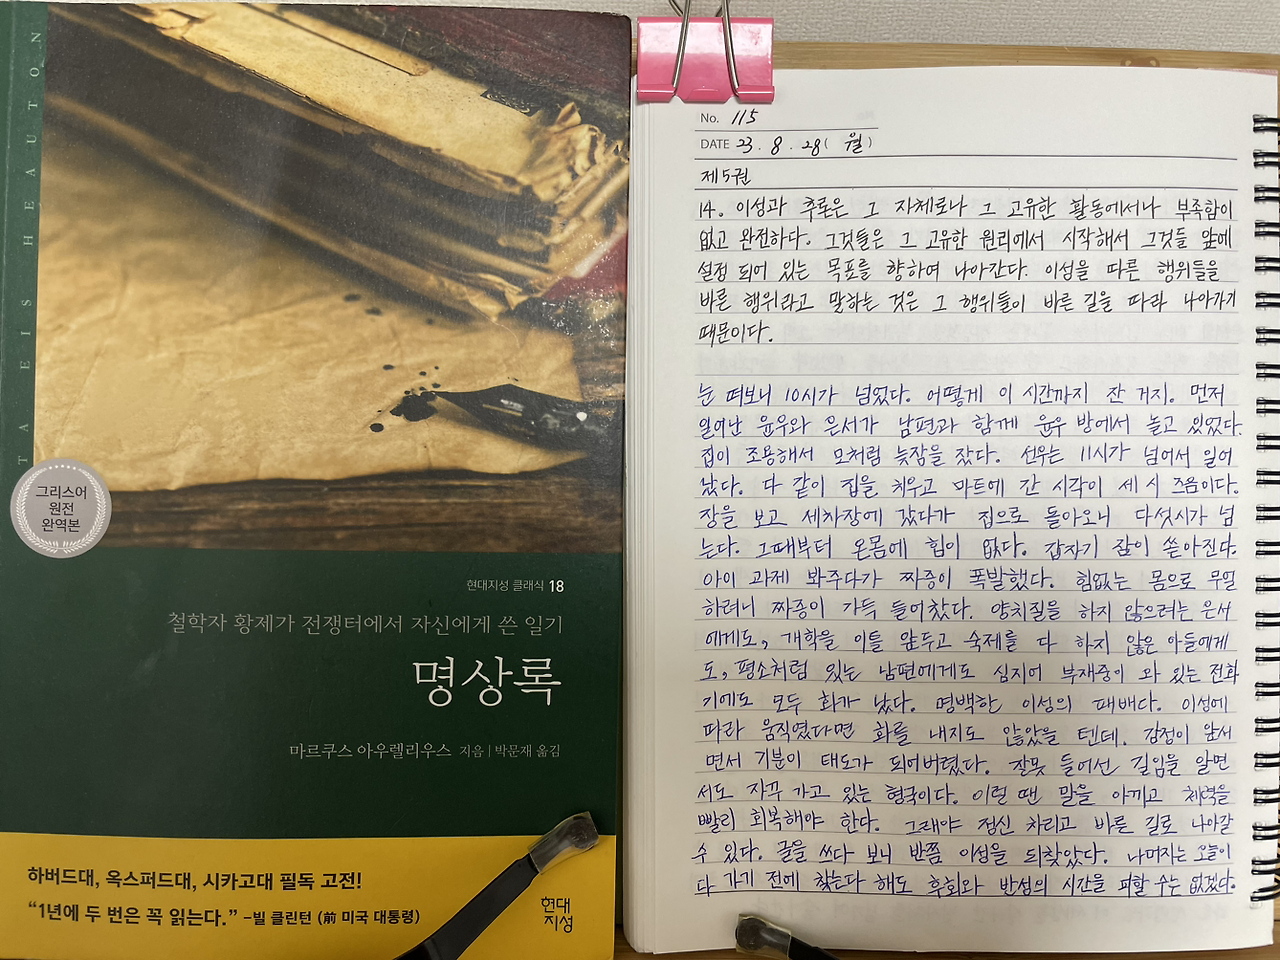 TA EIS HEAUTON
그리스어
원전
완역본
현대지성 클래식 18
철학자 황제가 전쟁터에서 자신에게 쓴 일기
명상록
마르쿠스 아우렐리우스 지음 | 박문재 옮김
하버드대, 옥스퍼드대, 시카고대 필독 고전!
“1년에 두 번은 꼭 읽는다.” –빌 클린턴 (前 미국 대통령)
현대
지성
No. 115
DATE 23. 8. 28 ( 월 )
제5권
14. 이성과 추론은 그 자체로나 그 고유한 활동에서나 부족함이
없고 완전하다. 그것들은 그 고유한 원리에서 시작해서 그것들 앞에
설정 되어 있는 목표를 향하여 나아간다. 이성을 따른 행위들을
바른 행위라고 말하는 것은 그 행위들이 바른 길을 따라 나아가기
때문이다.
눈 떠보니 10시가 넘었다. 어떻게 이 시간까지 잔 거지. 먼저
일어난 윤우와 은서가 남편과 함께 윤우 방에서 놀고 있었다.
집이 조용해서 모처럼 늦잠을 잤다. 선우는 11시가 넘어서 일어
났다. 다 같이 집을 치우고 마트에 간 시각이 세 시 즈음이다.
장을 보고 세차장에 갔다가 집으로 돌아오니 다섯시가 넘
는다. 그때부터 온몸에 힘이 없다. 갑자기 잠이 쏟아진다.
아이 과제 봐주다가 짜증이 폭발했다. 힘없는 몸으로 무얼
하려니 짜증이 가득 들어찼다. 양치질을 하지 않으려는 은서
에게도, 개학을 이틀 앞두고 숙제를 다 하지 않은 아들에게
도, 평소처럼 있는 남편에게도 심지어 부재중이 와 있는 전화
기에도 모두 화가 났다. 명백한 이성의 패배다. 이성에
따라 움직였다면 화를 내지도 않았을 텐데. 감정이 앞서
면서 기분이 태도가 되어버렸다. 잘못 들어선 길임을 알면
서도 자꾸 가고 있는 형국이다. 이럴 땐 말을 아끼고 체력을
빨리 회복해야 한다. 그래야 정신 차리고 바른 길로 나아갈
수 있다. 글을 쓰다 보니 반쯤 이성을 되찾았다. 나머지는 오늘이
다 가기 전에 찾는다 해도 후회와 반성의 시간을 피할 수는 없겠다.